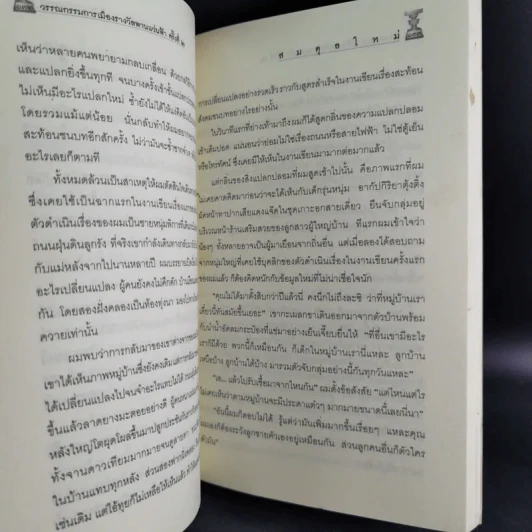 วรรณกรรมการเมืองรางวัลพานแว่นฟ้า ครั้งที่ ๒
เห็นว่าหลายคนพยายามกลบเกลื่อน
และแปลกยิ่งขึ้นทุกที จนบางครั้งชั้น
ไม่เห็นมีอะไรแปลกใหม่ ซ้ำยังไม่ได้ให้
โดยรวมแม้แต่น้อย นั่นกลับทำให้ผม
สะท้อนชนบทอีกสักครั้ง ไม่ว่ามันจะ
อะไรเลยก็ตามที
ทั้งหมดล้วนเป็นสาเหตุให้ผมตัดสินใจ
ซึ่งเคยใช้เป็นฉากแรกในงานเขียนเรื่อง
ตัวดำเนินเรื่องของผมเป็นชายหนุ่มพิการที่
ถนนฝุ่นดินลูกรัง ที่จริงเขากำลังเดินทาง
กับแม่หลังจากไปนานหลายปี
อะไรเปลี่ยนแปลง ผู้คนยังคงไม่คึกคัก
โดยสองฝั่งคลองเป็นท้องทุ่งนา
ควายเท่านั้น
ผมพบว่าการกลับมาของเขาต่างจาก
เขาได้เห็นภาพหมู่บ้านซึ่งยังคงเดิม
ได้เปลี่ยนแปลงไปจนจำอะไรแทบไม่ได้
ขึ้นแล้วลาดยางมะตอยอย่างดี
หลังใหญ่โตผุดโผล่ขึ้นมา
ทั้งจานดาวเทียมมากมาย
ในบ้านแทบทุกหลัง ส่วนสอง
เช่นเดิม แต่ไอ้ทุยก็ไม่เหลือให้เห็นแล้ว
สมคุอใหม่
การเปลี่ยนแปลงอย่างรวดเร็ว ราวกับสูตรสำเร็จในงานเขียนเรื่องสะท้อน
สังคมชนบทอย่างไรอย่างนั้น
ในวินาทีแรกที่ย่างเท้ามาถึงผมก็ได้สูดกลิ่นของความแปลกปลอม
เข้าเต็มปอด แน่นอนว่าย่อมไม่ใช่เรื่องถนนหรือสายไฟฟ้า ไม่ใช่ตู้เย็น
หรือโทรทัศน์ ซึ่งเคยมีให้เห็นในงานเขียนมามากต่อมากแล้ว
แต่กลิ่นของสิ่งแปลกปลอมที่ผมสูดเข้าไปนั้น คือภาพแรกที่ผม
ไม่เคยคาดคิดมาก่อนว่าจะได้เห็นกับเด็กรุ่นหนุ่ม อากัปกิริยาตุ้งติ้ง
ผัดหน้าทาปากเสียแดงแจ๊ดในชุดเกาะอกสายเดี่ยว ยืนจับกลุ่มอยู่
บริเวณหน้าร้านเสริมสวยของลูกสาวผู้ใหญ่บ้าน ทีแรกผมเข้าใจว่า
น้องๆ ทั้งหลายอาจเป็นผู้มาเยือนจากถิ่นอื่น แต่เมื่อลองได้สอบถาม
จากหนุ่มใหญ่ที่เคยใช้บุคลิกของตัวดำเนินเรื่องในงานเขียนครั้งแรก
ของผมแล้ว ก็ต้องคิดหนักกับข้อมูลใหม่ที่ไม่น่าเชื่อใจนัก
“คุณไม่ได้มาตั้งสิบกว่าปีแล้วนี่ คงนึกไม่ถึงละซิ ว่าที่หมู่บ้านเรา
เดี๋ยวนี้ทันสมัยขึ้นเยอะ” เขากะเผลกขาเดินออกมาจากตัวบ้านพร้อม
กับนำน้ำอัดลมกระป๋องที่แช่มาอย่างเย็นเจี๊ยบยื่นให้ “ที่อื่นเขามีอะไร
เราก็มีด้วย พวกนี้ก็เหมือนกัน ก็เด็กในหมู่บ้านเรานี่แหละ ลูกบ้าน
เหนือบ้าง ลูกบ้านใต้บ้าง มารวมตัวจับกลุ่มอย่างนี้กันทุกวันแหละ”
“เอ... แล้วไปรับเชื้อมาจากไหนกัน” ผมตั้งข้อสังสัย “แต่ไหนแต่ไร
ไม่เคยเห็นว่าตามหมู่บ้านจะมีประดาแต๋วๆ มากมายขนาดนี้เลยนี่นา”
“อันนี้ผมก็ตอบไม่ได้ รู้แต่ว่ามันเพิ่มมากขึ้นเรื่อยๆ แหละคุณ
ผมเองก็ต้องระวังลูกชายตัวเองอยู่เหมือนกัน ส่วนลูกคนอื่นก็ตัวใคร
ตัวมัน”